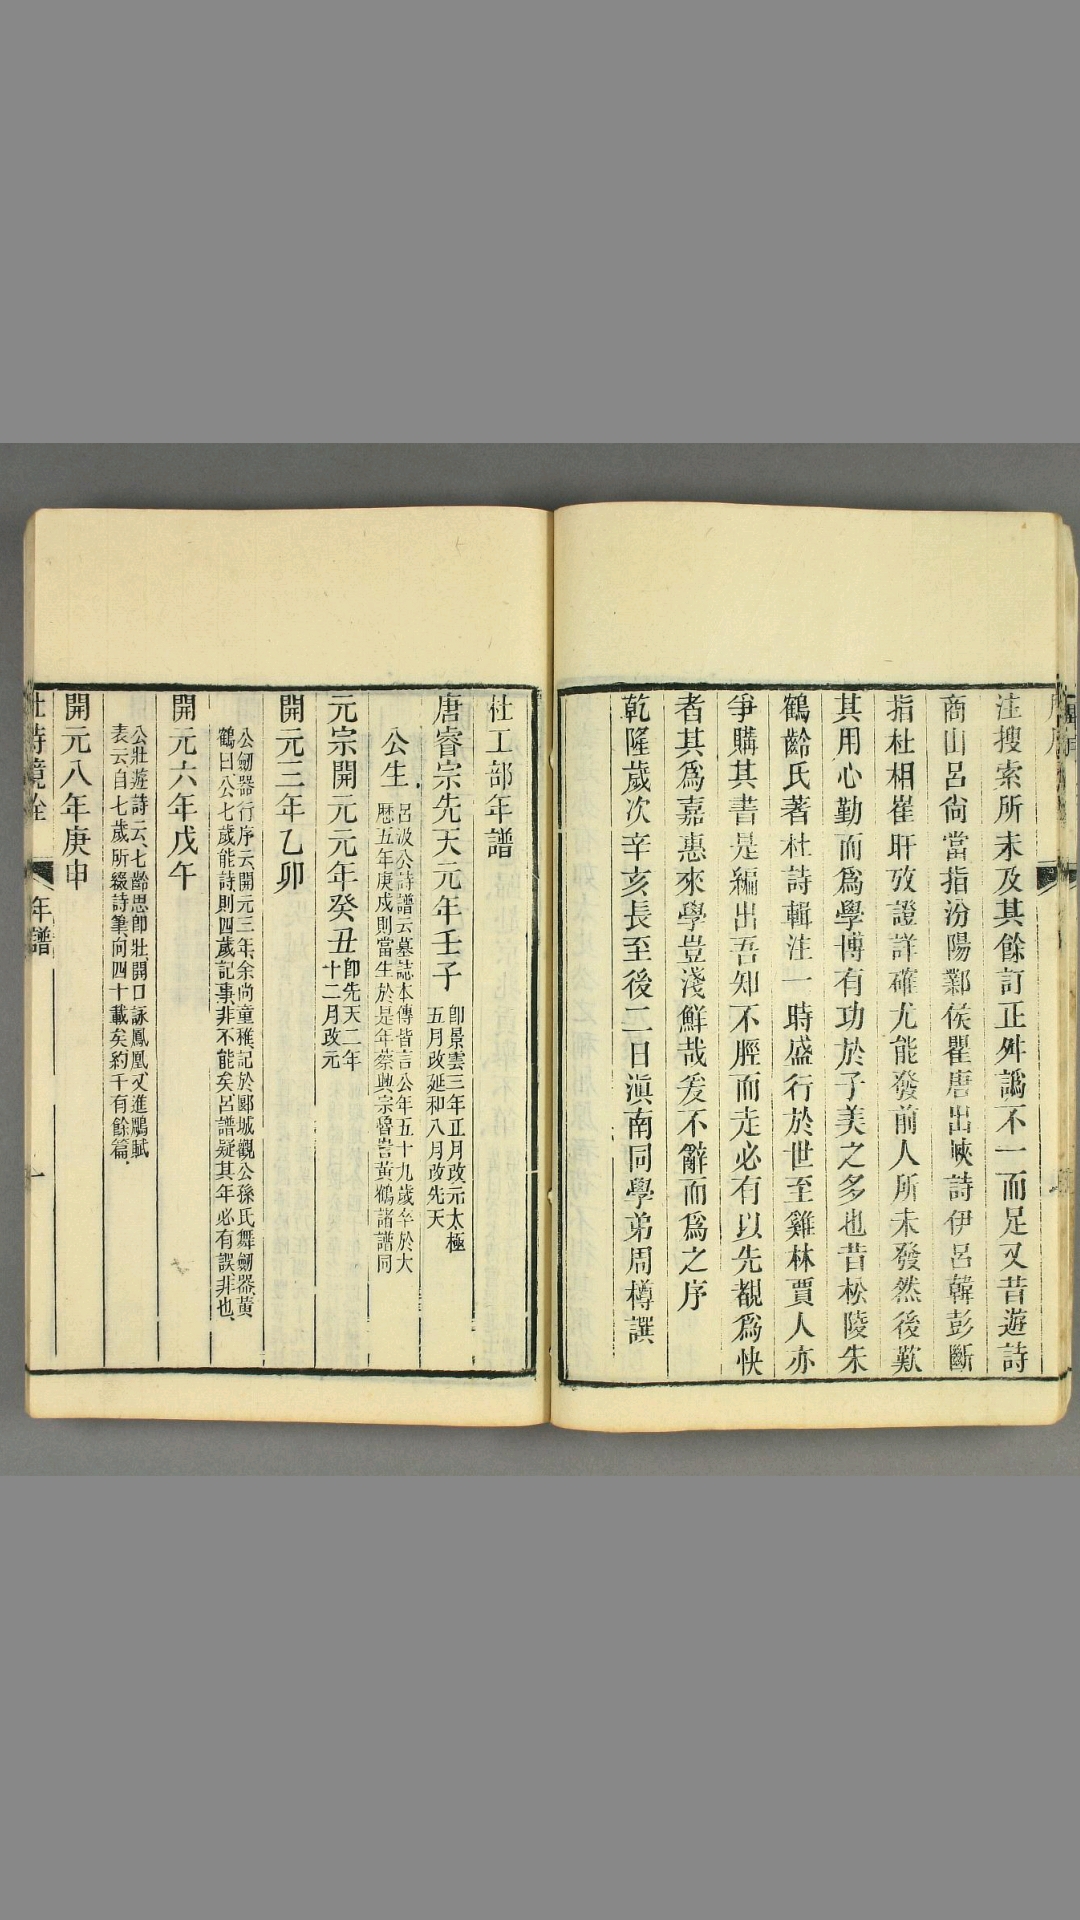 注搜索所未及其餘訂正舛譌不一而足又昔遊詩
商山呂尚當指汾陽鄴侯瞿唐出峽詩伊呂韓彭斷
指杜相崔旰攷證詳確尤能發前人所未發然後歎
其用心勤而爲學博有功於子美之多也昔松陵朱
鶴齡氏著杜詩輯注一時盛行於世至雞林賈人亦
爭購其書是編出吾知不脛而走必有以先覩爲快
者其爲嘉惠來學豈淺鮮哉爰不辭而爲之序
乾隆歲次辛亥長至後二日滇南同學弟周樽譔
杜工部年譜
唐睿宗先天元年壬子
卽景雲三年正月改元太極
五月改延和八月改先天
公生
呂汲公詩譜云墓誌本傳皆言公年五十九歲卒於大
曆五年庚戌則當生於是年蔡興宗魯訔黃鶴諸譜同
元宗開元元年癸丑
卽先天二年
十二月改元
開元三年乙卯
公劒器行序云開元三年余尚童稚記於郾城觀公孫氏舞劒器黃
鶴曰公七歲能詩則四歲記事非不能矣呂譜疑其年必有誤非也
開元六年戊午
公壯遊詩云七齡思卽壯開口詠鳳凰又進鵰賦
表云自七歲所綴詩筆向四十載矣約千有餘篇
開元八年庚申
杜詩鏡銓
年譜
一